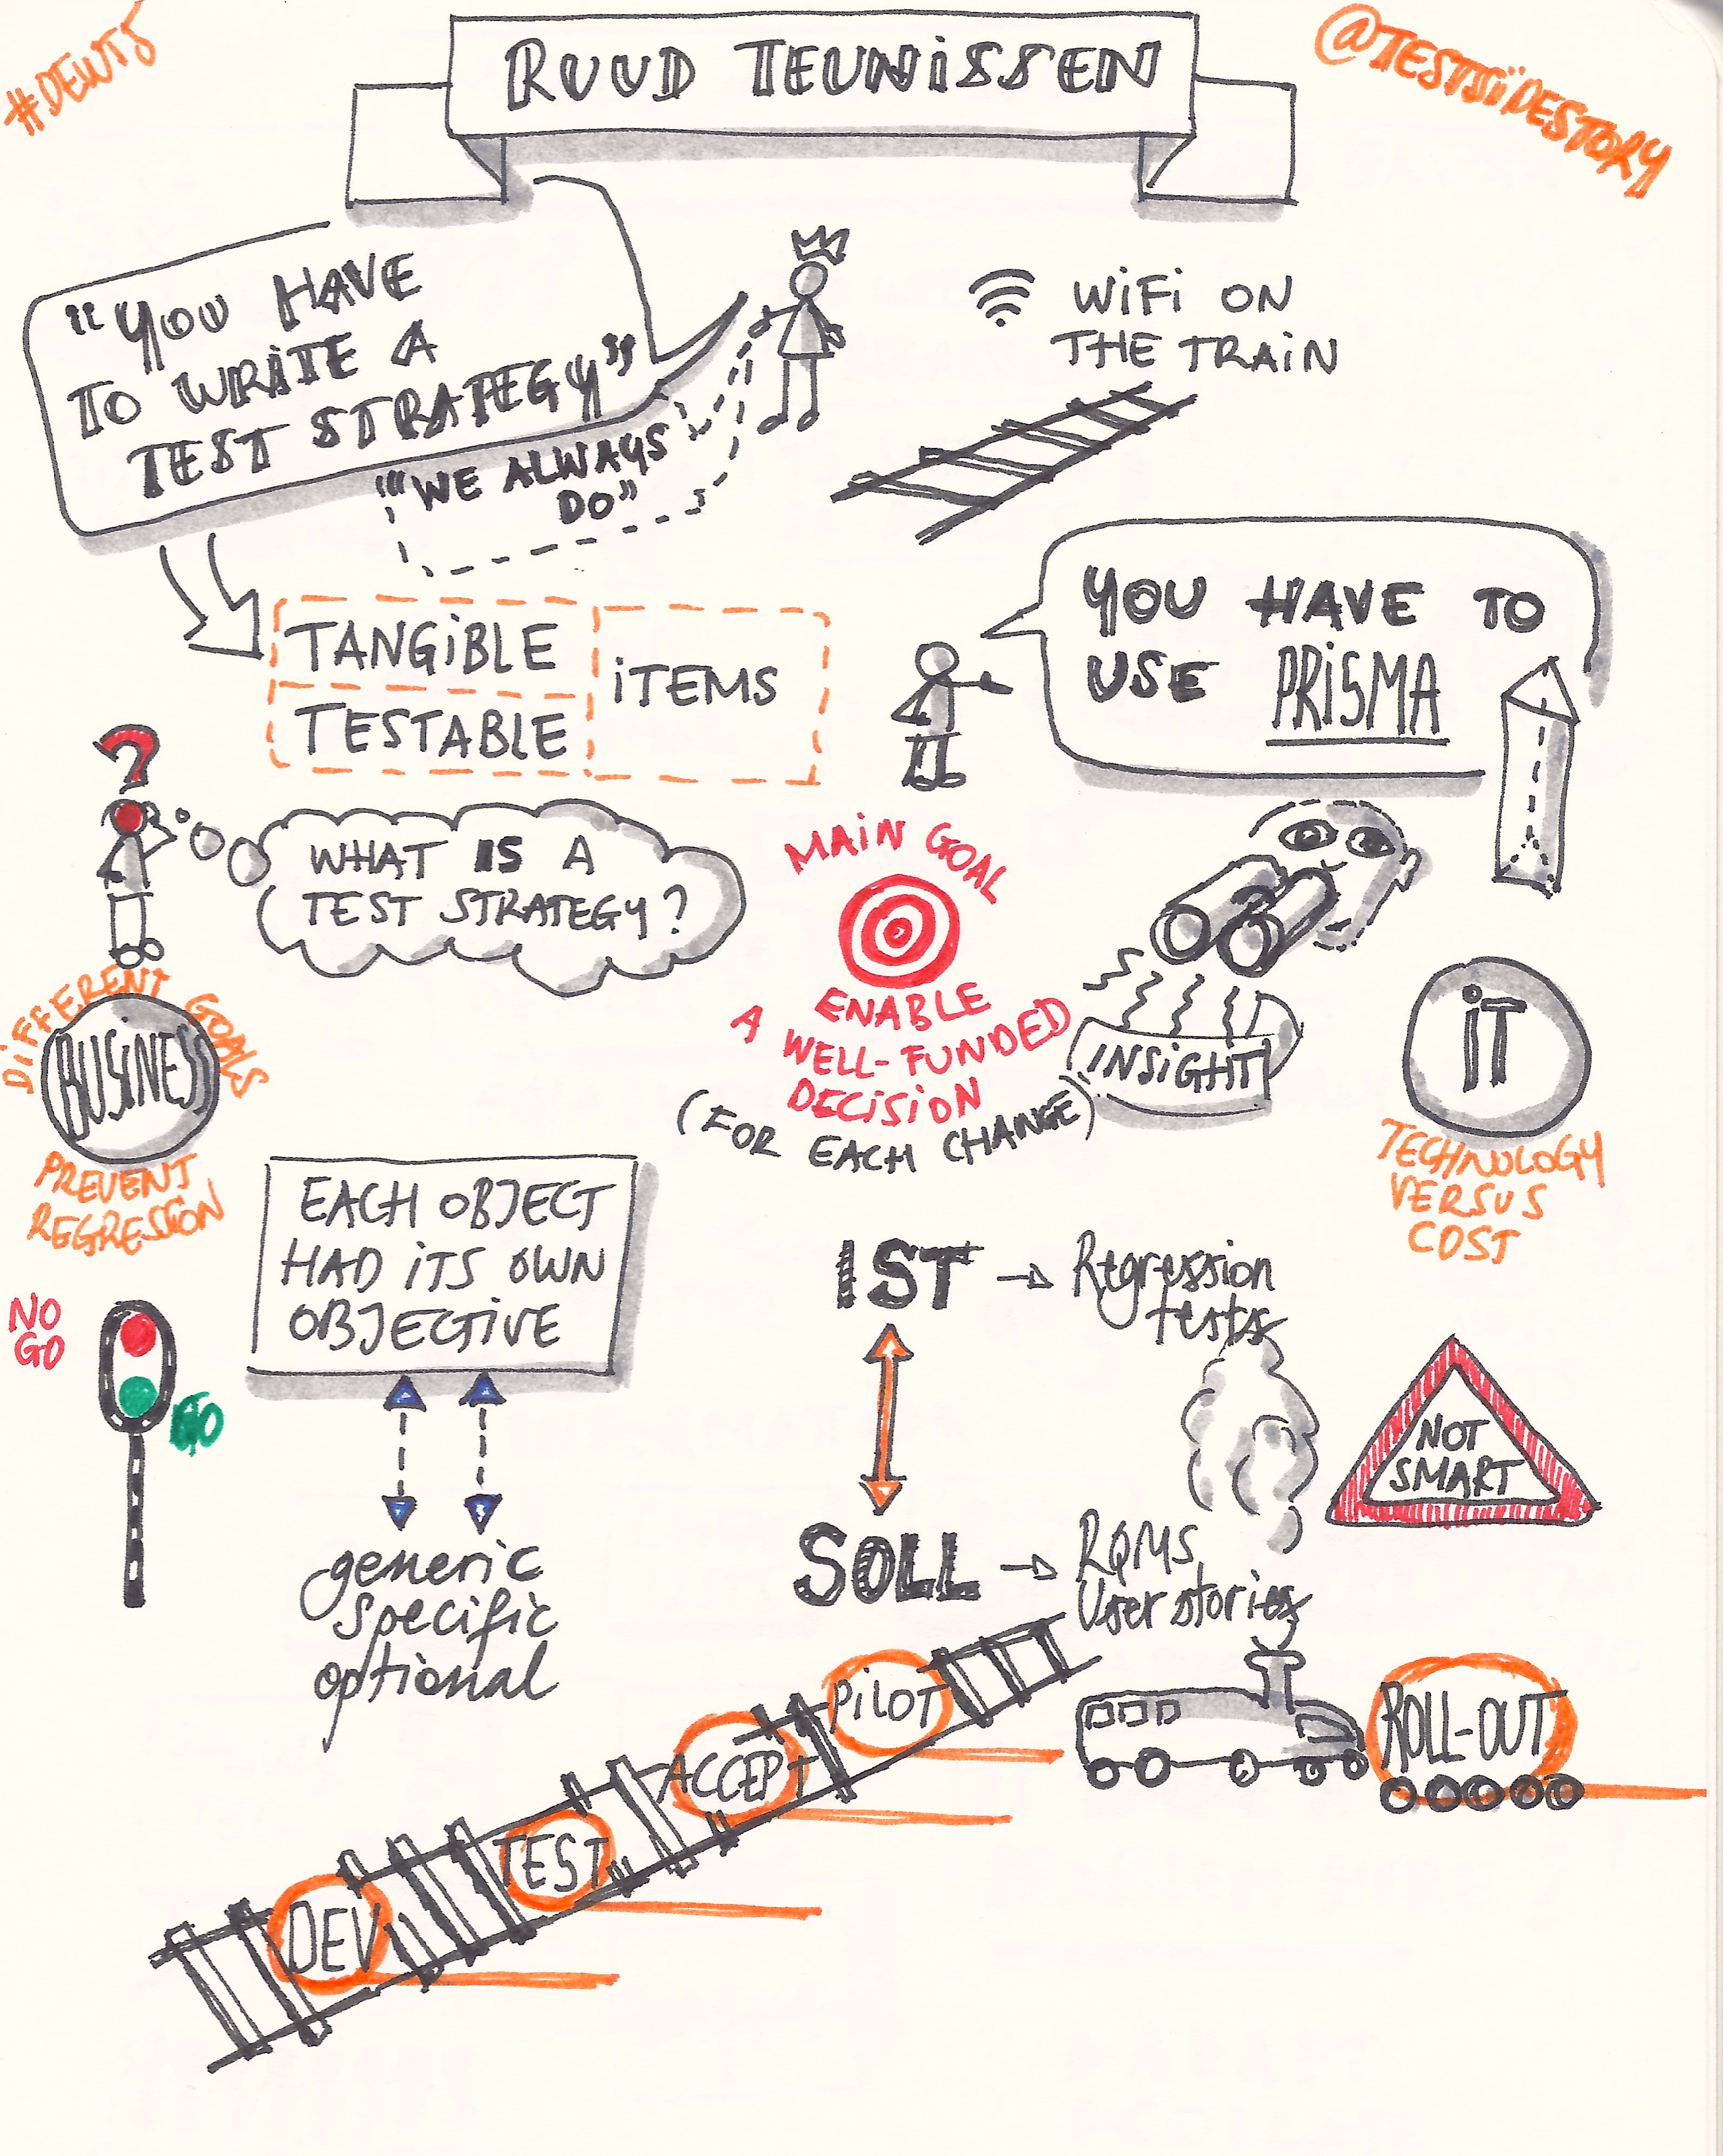 #DEWT5
RUUD TEUNISSEN
@TESTSIDESTORY
"YOU HAVE
TO WRITE A
TEST STRATEGY"
"WE ALWAYS
DO"
WIFI ON
THE TRAIN
TANGIBLE
TESTABLE
ITEMS
YOU HAVE TO
USE PRISMA
?
WHAT IS A
TEST STRATEGY?
MAIN GOAL
ENABLE
A WELL-FUNDED
DECISION
(FOR EACH CHANGE)
INSIGHT
DIFFERENT GOALS
BUSINESS
PREVENT
REGRESSION
IT
TECHNOLOGY
VERSUS
COST
EACH OBJECT
HAD ITS OWN
OBJECTIVE
generic
specific
optional
NO
GO
GO
IST → Regression
tests
SOLL → RQMS
User stories
NOT
SMART
DEV
TEST
ACCEPT
PILOT
ROLL-OUT